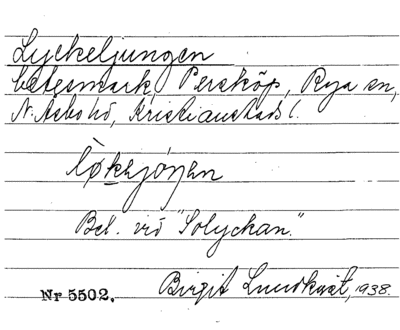 Lyckeljungen
betesmark, Perstöp, Rya sn,
N. Åsbo hd, Kristianstads l.
Bel. vid "Solyckan."
Nr 5502. Birgit Lundkvist, 1938.